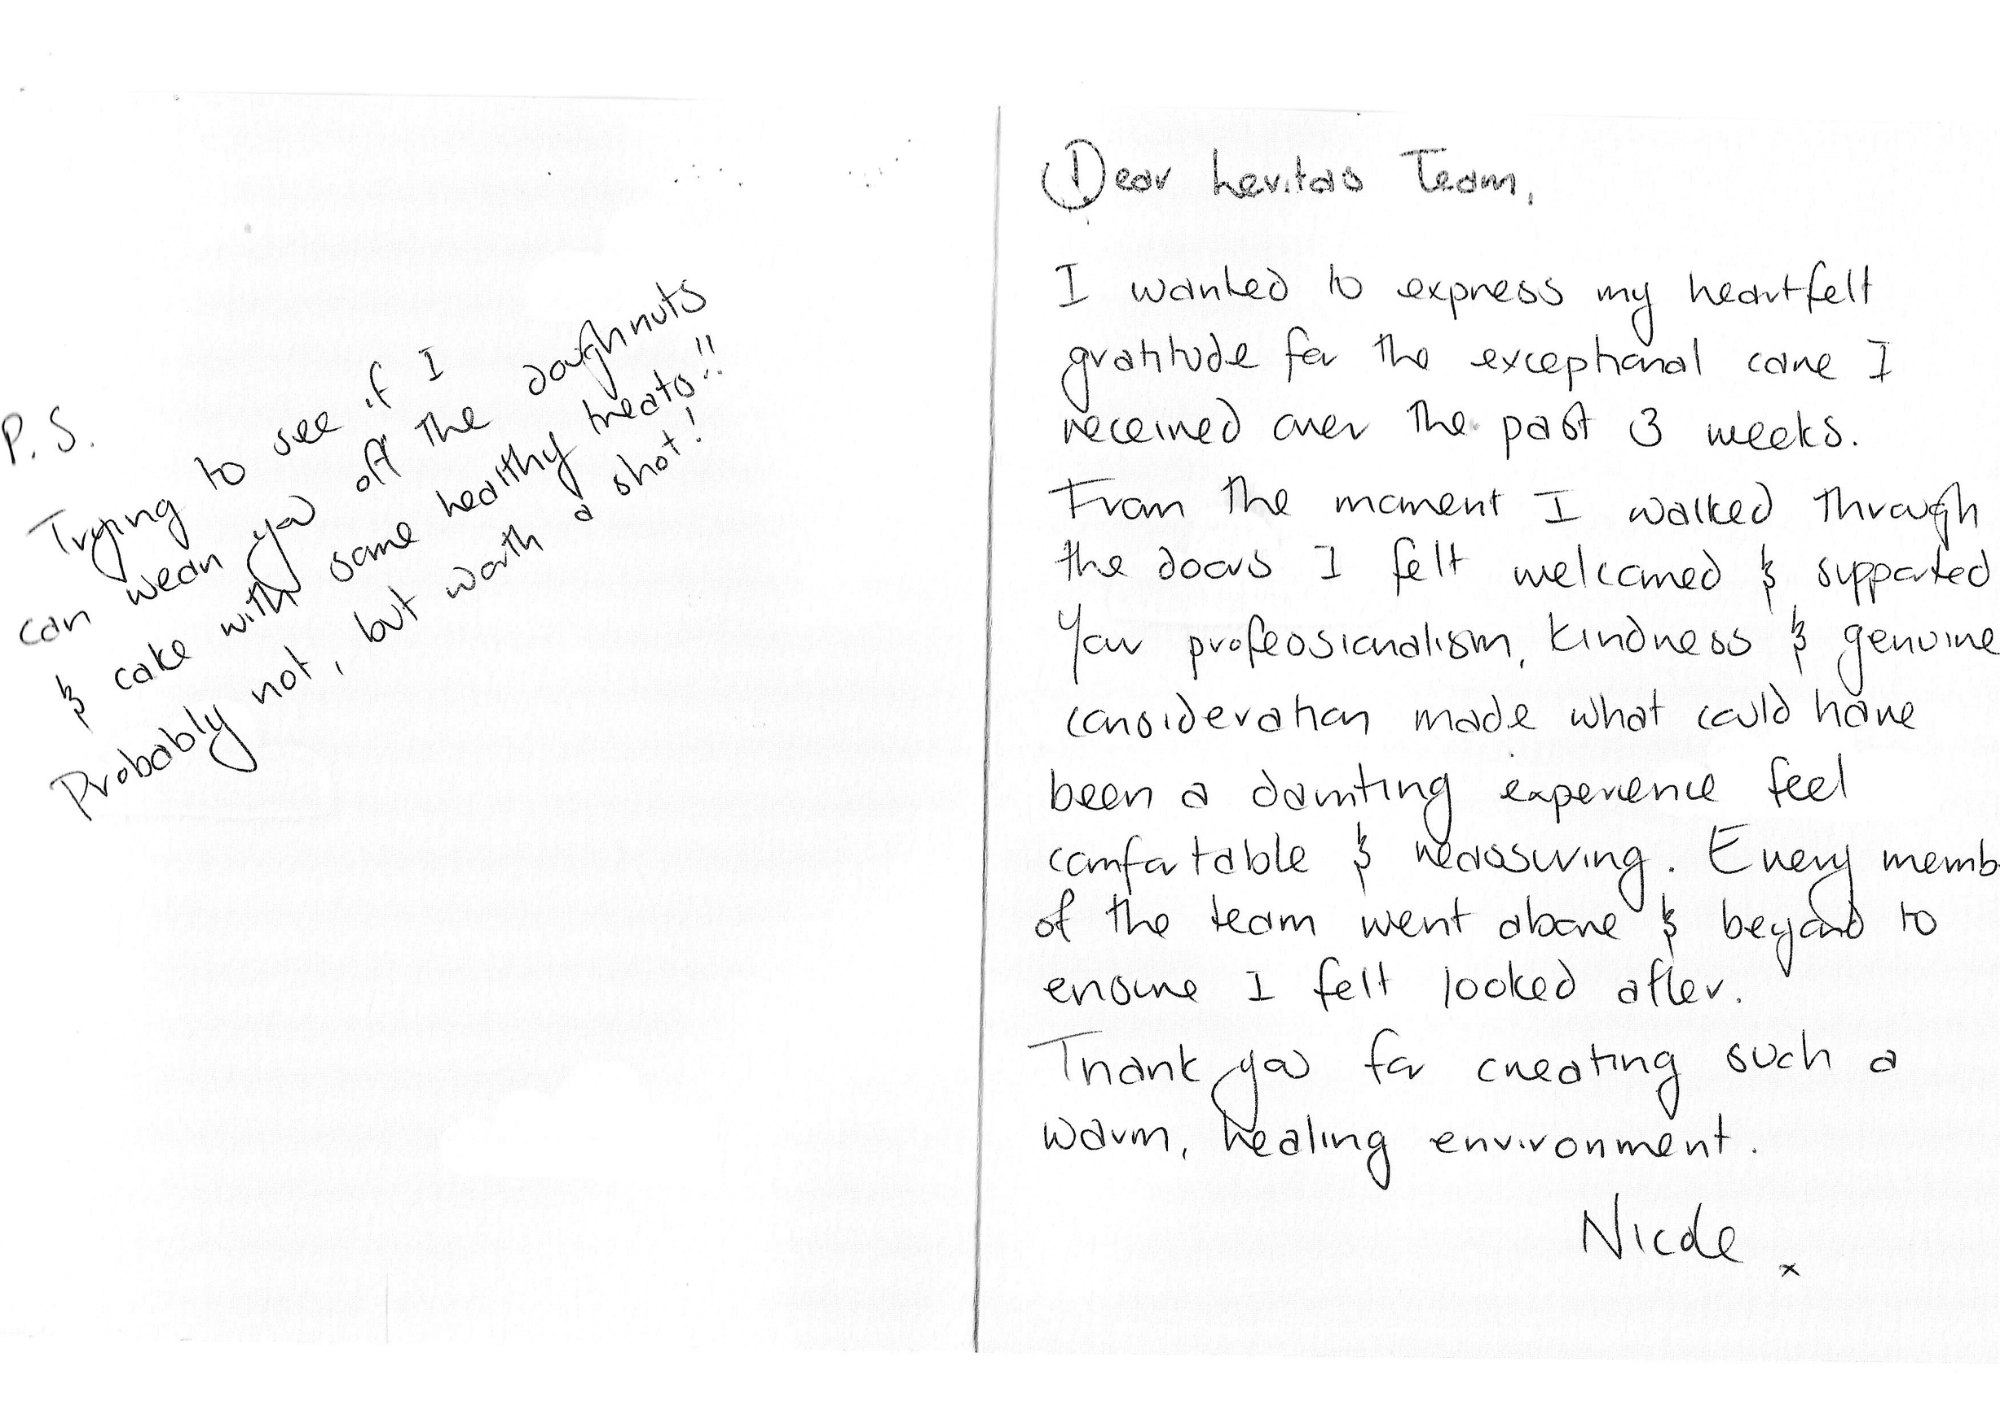 P.S.
Trying to see if I
can wean you off the doughnuts
& cake with some healthy treats!!
Probably not, but worth a shot!
Dear Levitas Team,
I wanted to express my heartfelt
gratitude for the exceptional care I
received over the past 3 weeks.
From the moment I walked through
the doors I felt welcomed & supported
Your professionalism, kindness & genuine
consideration made what could have
been a daunting experience feel
comfortable & reassuring. Every memb
of the team went above & beyond to
ensure I felt looked after.
Thank you for creating such a
warm, healing environment.
Nicole x